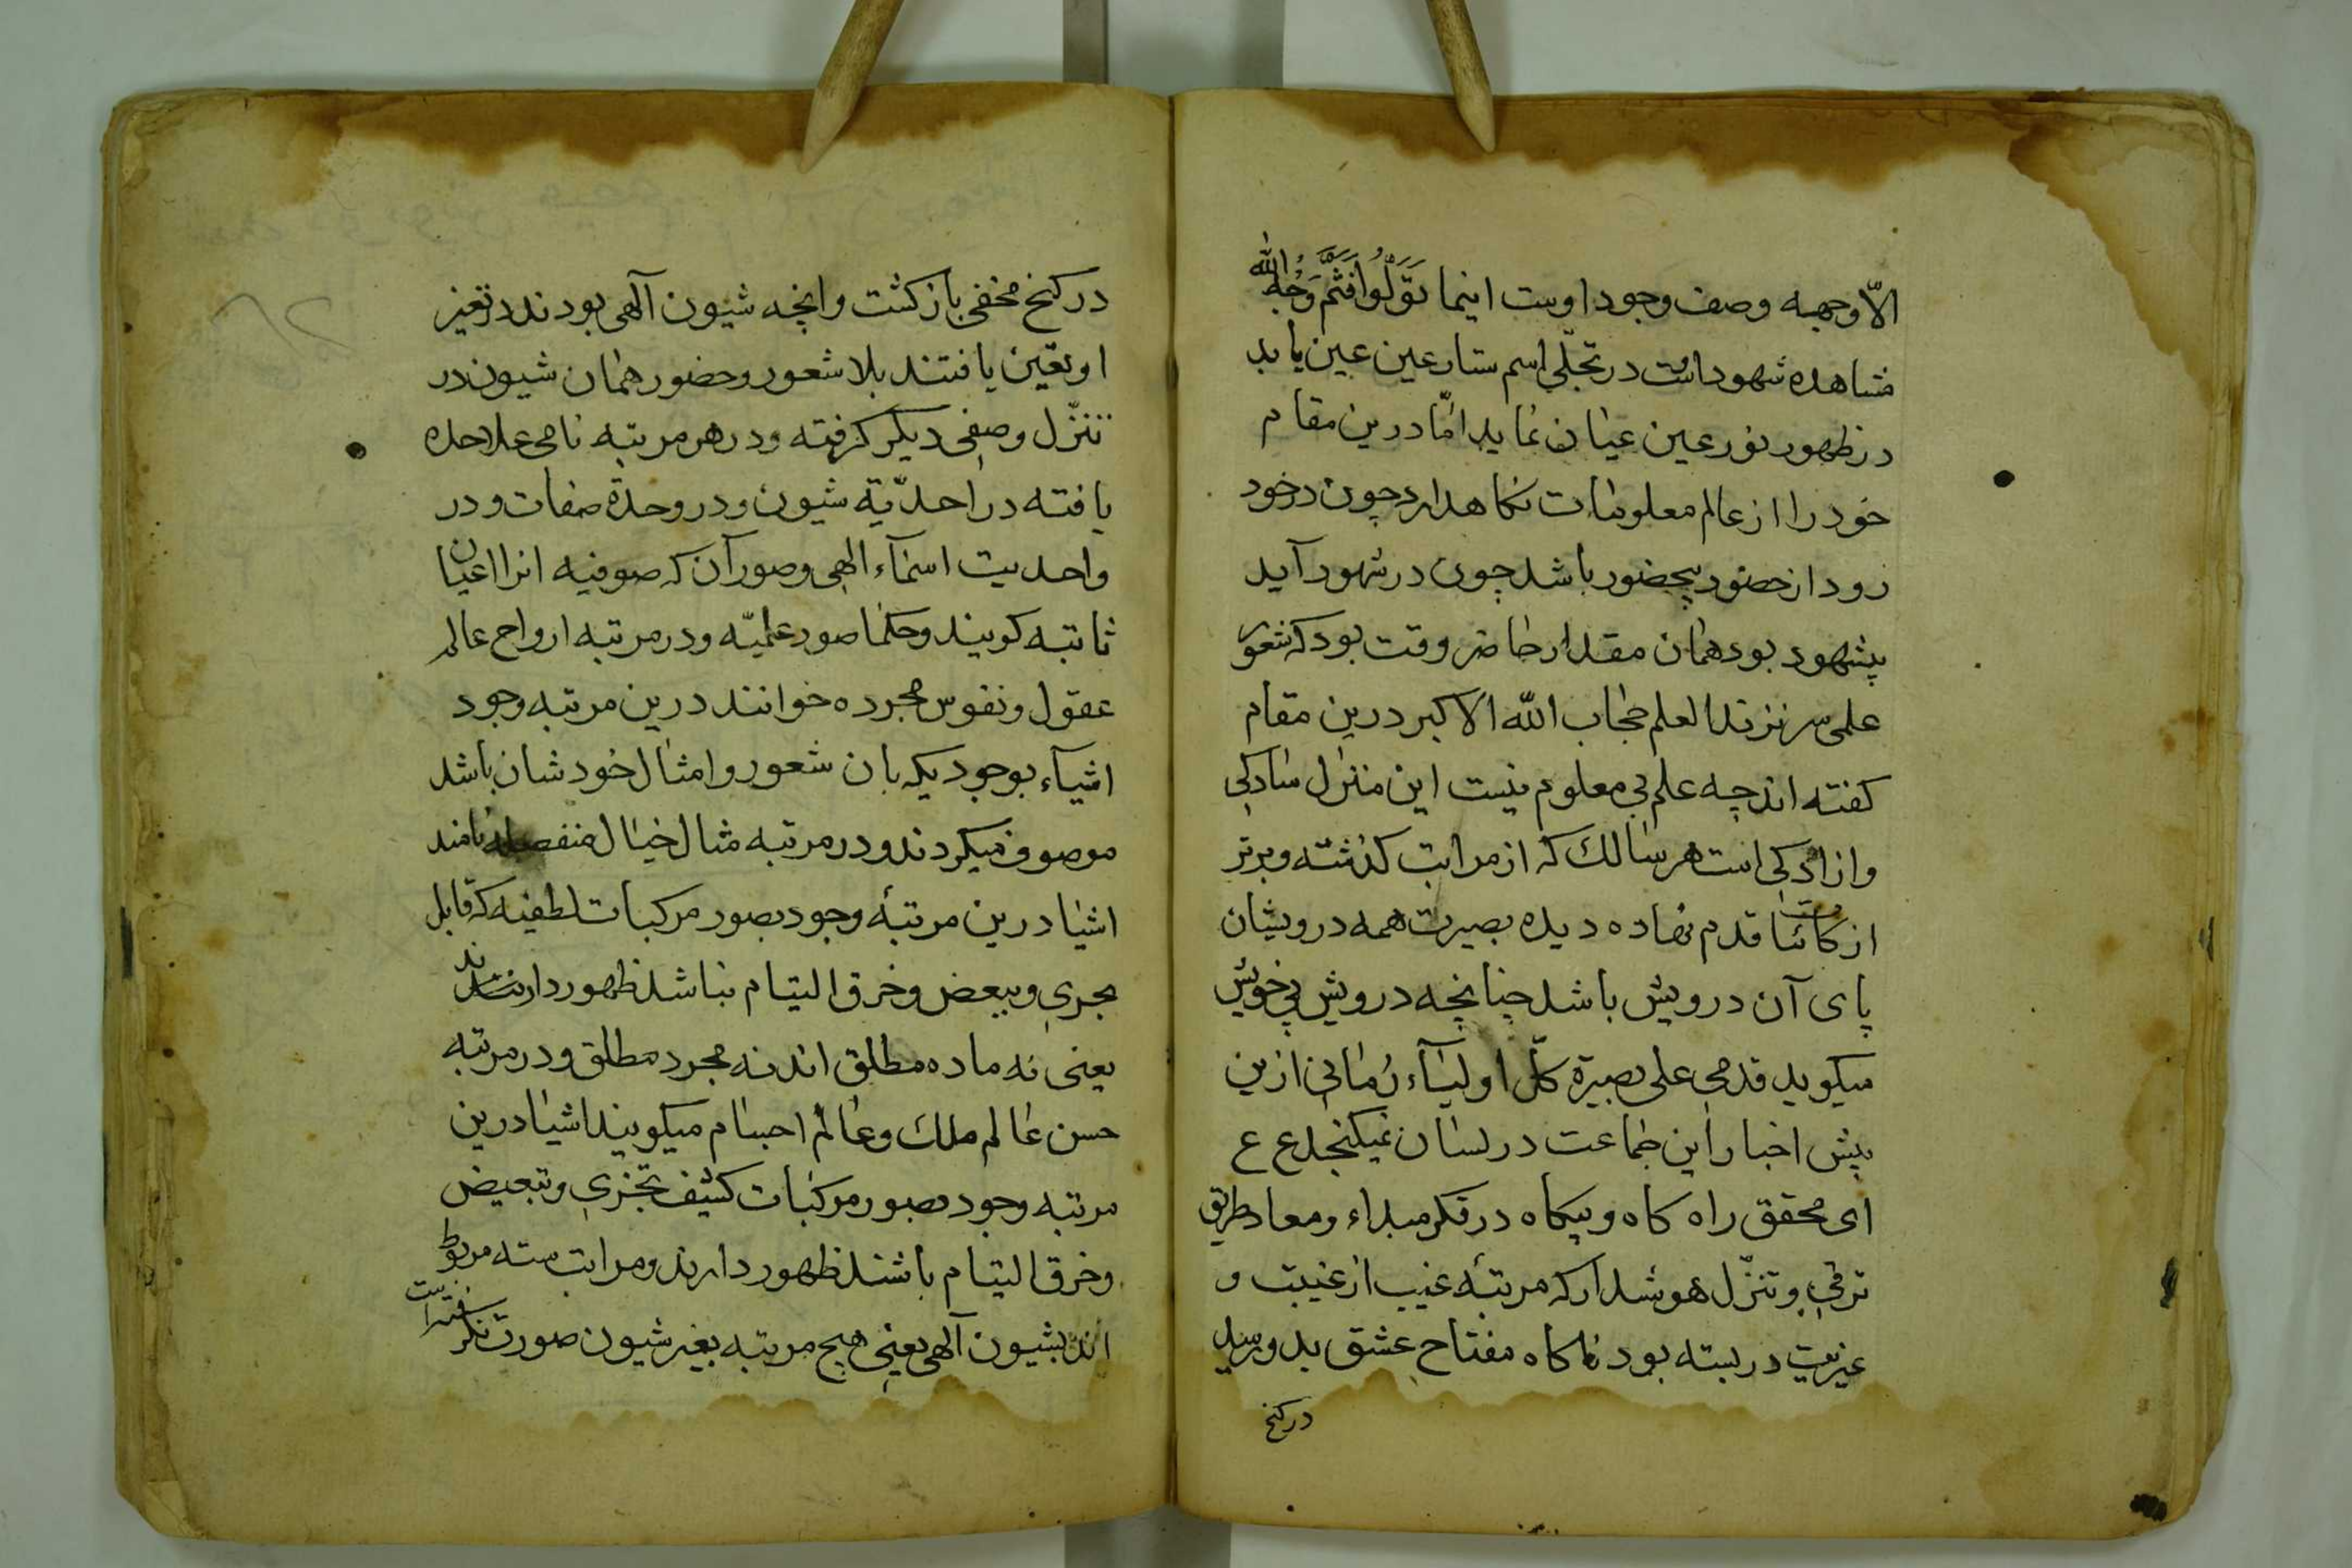 الّا وجهه وصف وجود اوست اینما تَوَلُّوا فَثَمَّ وَجْهُ الله
مشاهده شهود است در تجلّی اسم ستار عین عین یابد
در ظهور نور عین عیان نماید امّا درین مقام
خود را از عالم معلومات نکاهدارد چون در خود
رود از حضور بیحضور باشد چون در شهود آید
بیشهود بود همان مقدار حاضر وقت بود که شعور
علمی سر نزند العلم حجاب الله الاکبر درین مقام
کفته اند چه علم بی معلوم نیست این منزل سادکی
وازادکی است هر سالک که از مراتب کذشته و برتر
از کائنات قدم نهاده دیده بصیرت همه درویشان
پای آن درویش باشد چنانچه درویش بی خویش
میکوید قدمی علی بصیرة کلّ اولیاء زمانی ازین
بیش اخبار این جماعت در لسان نمیکنجد ع ع
ای محقق راه کاه و بیکاه در فکر مبداء و معاد طریق
ترقی و تنزّل هوشدار که مرتبهٔ غیب از غیبت و
غیریت در بسته بود ناکاه مفتاح عشق بدو رسید
در کنج
در کنج مخفی باز کشت وانچه شیون آلهی بودند در تغیر
او تعّین یافتند بلا شعور وحضور همان شیون در
تنزّل وصفی دیکر کرفته ودر هر مرتبه نامی علاحده
یافته در احدّیة شیون ودر وحدة صفات و در
واحدیت اسمآء الهی وصور آن که صوفیه انرا اعیان
ثابته کویند وحکما صور علمیّه ودر مرتبه ارواح عالم
عقول ونفوس مجرده خوانند درین مرتبه وجود
اشیآء بوجودیکه بان شعور وامثال خودشان باشد
موصوف میکردند ودر مرتبه مثال خیال منفصله نامند
اشیا درین مرتبهٔ وجود بصور مرکبات لطفیه که قابل
تجزی وتبعض وخرق التیام نباشد ظهور دارند
یعنی نه ماده مطلق اند نه مجرد مطلق ودر مرتبه
حسن عالم ملک وعالم اجسام میکویند اشیا درین
مرتبه وجود بصور مرکبات کثیف تجزی وتبعیض
وخرق التیام باشند ظهور دارند ومراتب سته مربوط
اند بشیون آلهی یعنی هیچ مرتبه بغیر شیون صورت نکرفته است